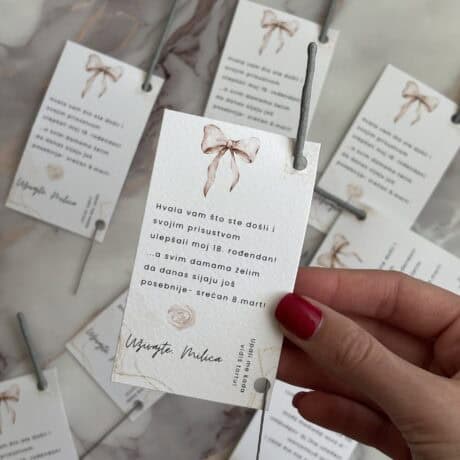 Hvala vam što ste došli i
svojim prisustvom
ulepšali moj 18. rođendan!
...a svim damama želim
da danas sijaju još
posebnije- srećan 8.mart!
Uživajte, Milica
Upali me kada
vidiš tortu!